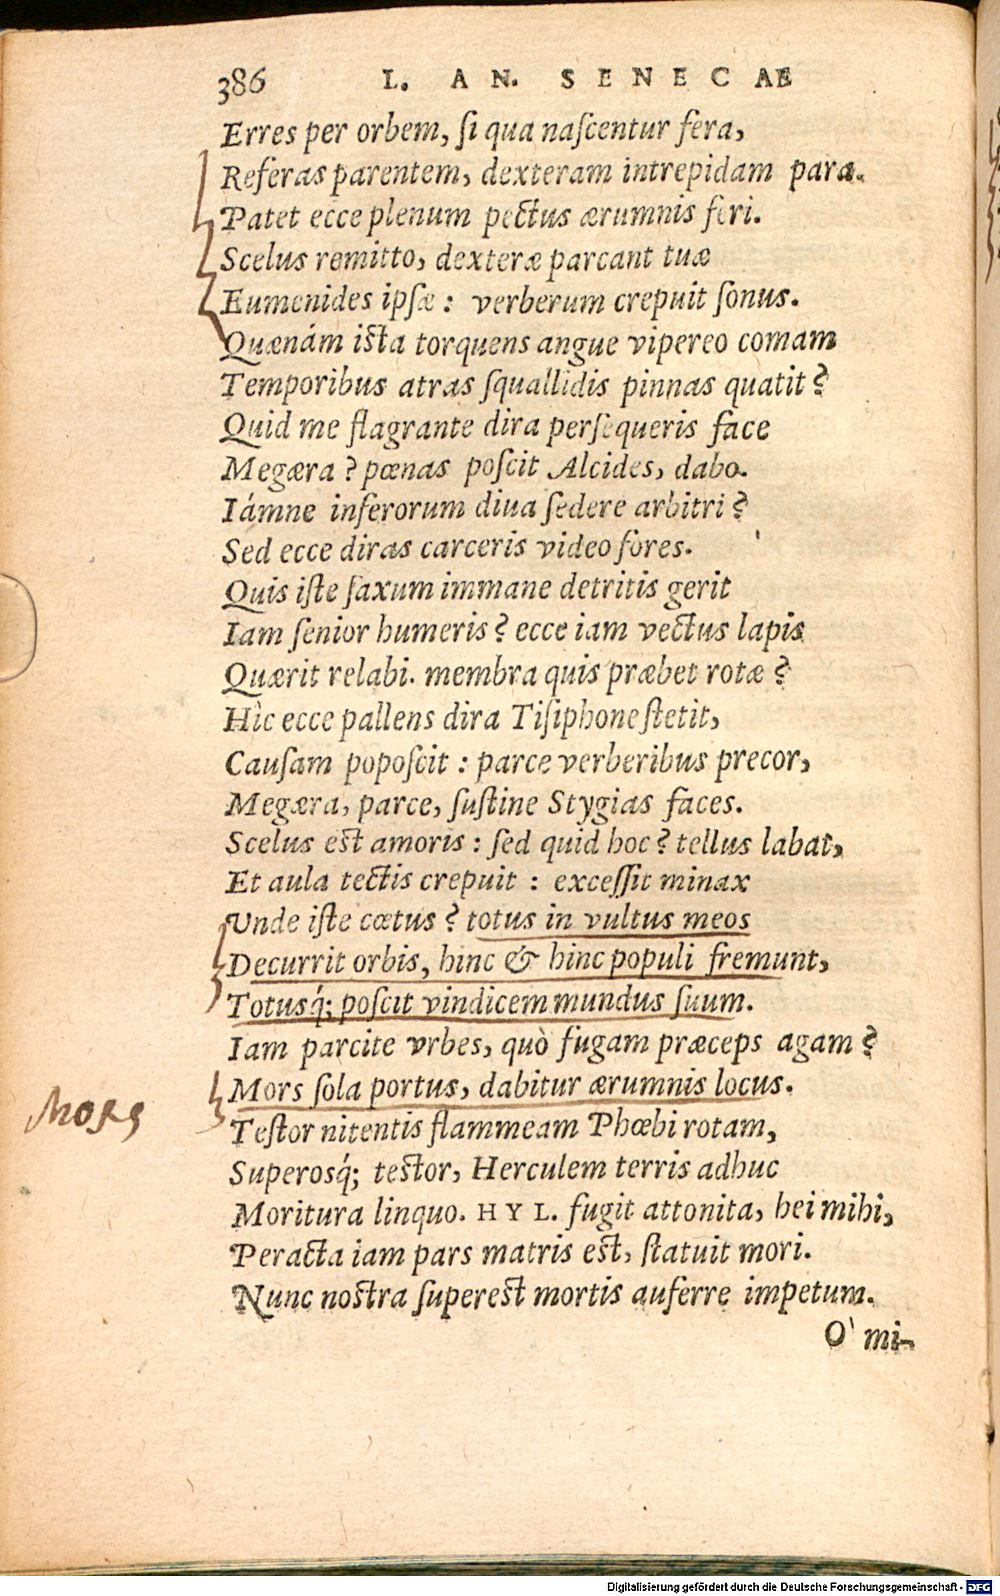 386 L. AN. SENECAE
Erres per orbem, ſi qua naſcentur fera,
Referas parentem, dexteram intrepidam para.
Patet ecce plenum pectus ærumnis feri.
Scelus remitto, dexteræ parcant tuæ
Eumenides ipſæ: verberum crepuit ſonus.
Quænám iſta torquens angue vipereo comam
Temporibus atras ſquallidis pinnas quatit?
Quid me flagrante dira perſequeris face
Megæra? pœnas poſcit Alcides, dabo.
Iámne inferorum diua ſedere arbitri?
Sed ecce diras carceris video fores.
Quis iſte ſaxum immane detritis gerit
Iam ſenior humeris? ecce iam vectus lapis
Quærit relabi. membra quis præbet rotæ?
Hìc ecce pallens dira Tiſiphone ſtetit,
Cauſam popoſcit: parce verberibus precor,
Megæra, parce, ſuſtine Stygias faces.
Scelus eſt amoris: ſed quid hoc? tellus labat,
Et aula tectis crepuit: exceſſit minax
Vnde iſte cœtus? totus in vultus meos
Decurrit orbis, hinc & hinc populi fremunt,
Totusq́; poſcit vindicem mundus ſuum.
Iam parcite vrbes, quò fugam præceps agam?
Mors ſola portus, dabitur ærumnis locus.
Mors
Teſtor nitentis flammeam Phœbi rotam,
Superosq́; teſtor, Herculem terris adhuc
Moritura linquo. HYL. fugit attonita, hei mihi,
Peracta iam pars matris eſt, ſtatuit mori.
Nunc noſtra ſupereſt mortis auferre impetum.
O` mi-
Digitalisierung gefördert durch die Deutsche Forschungsgemeinschaft - DFG